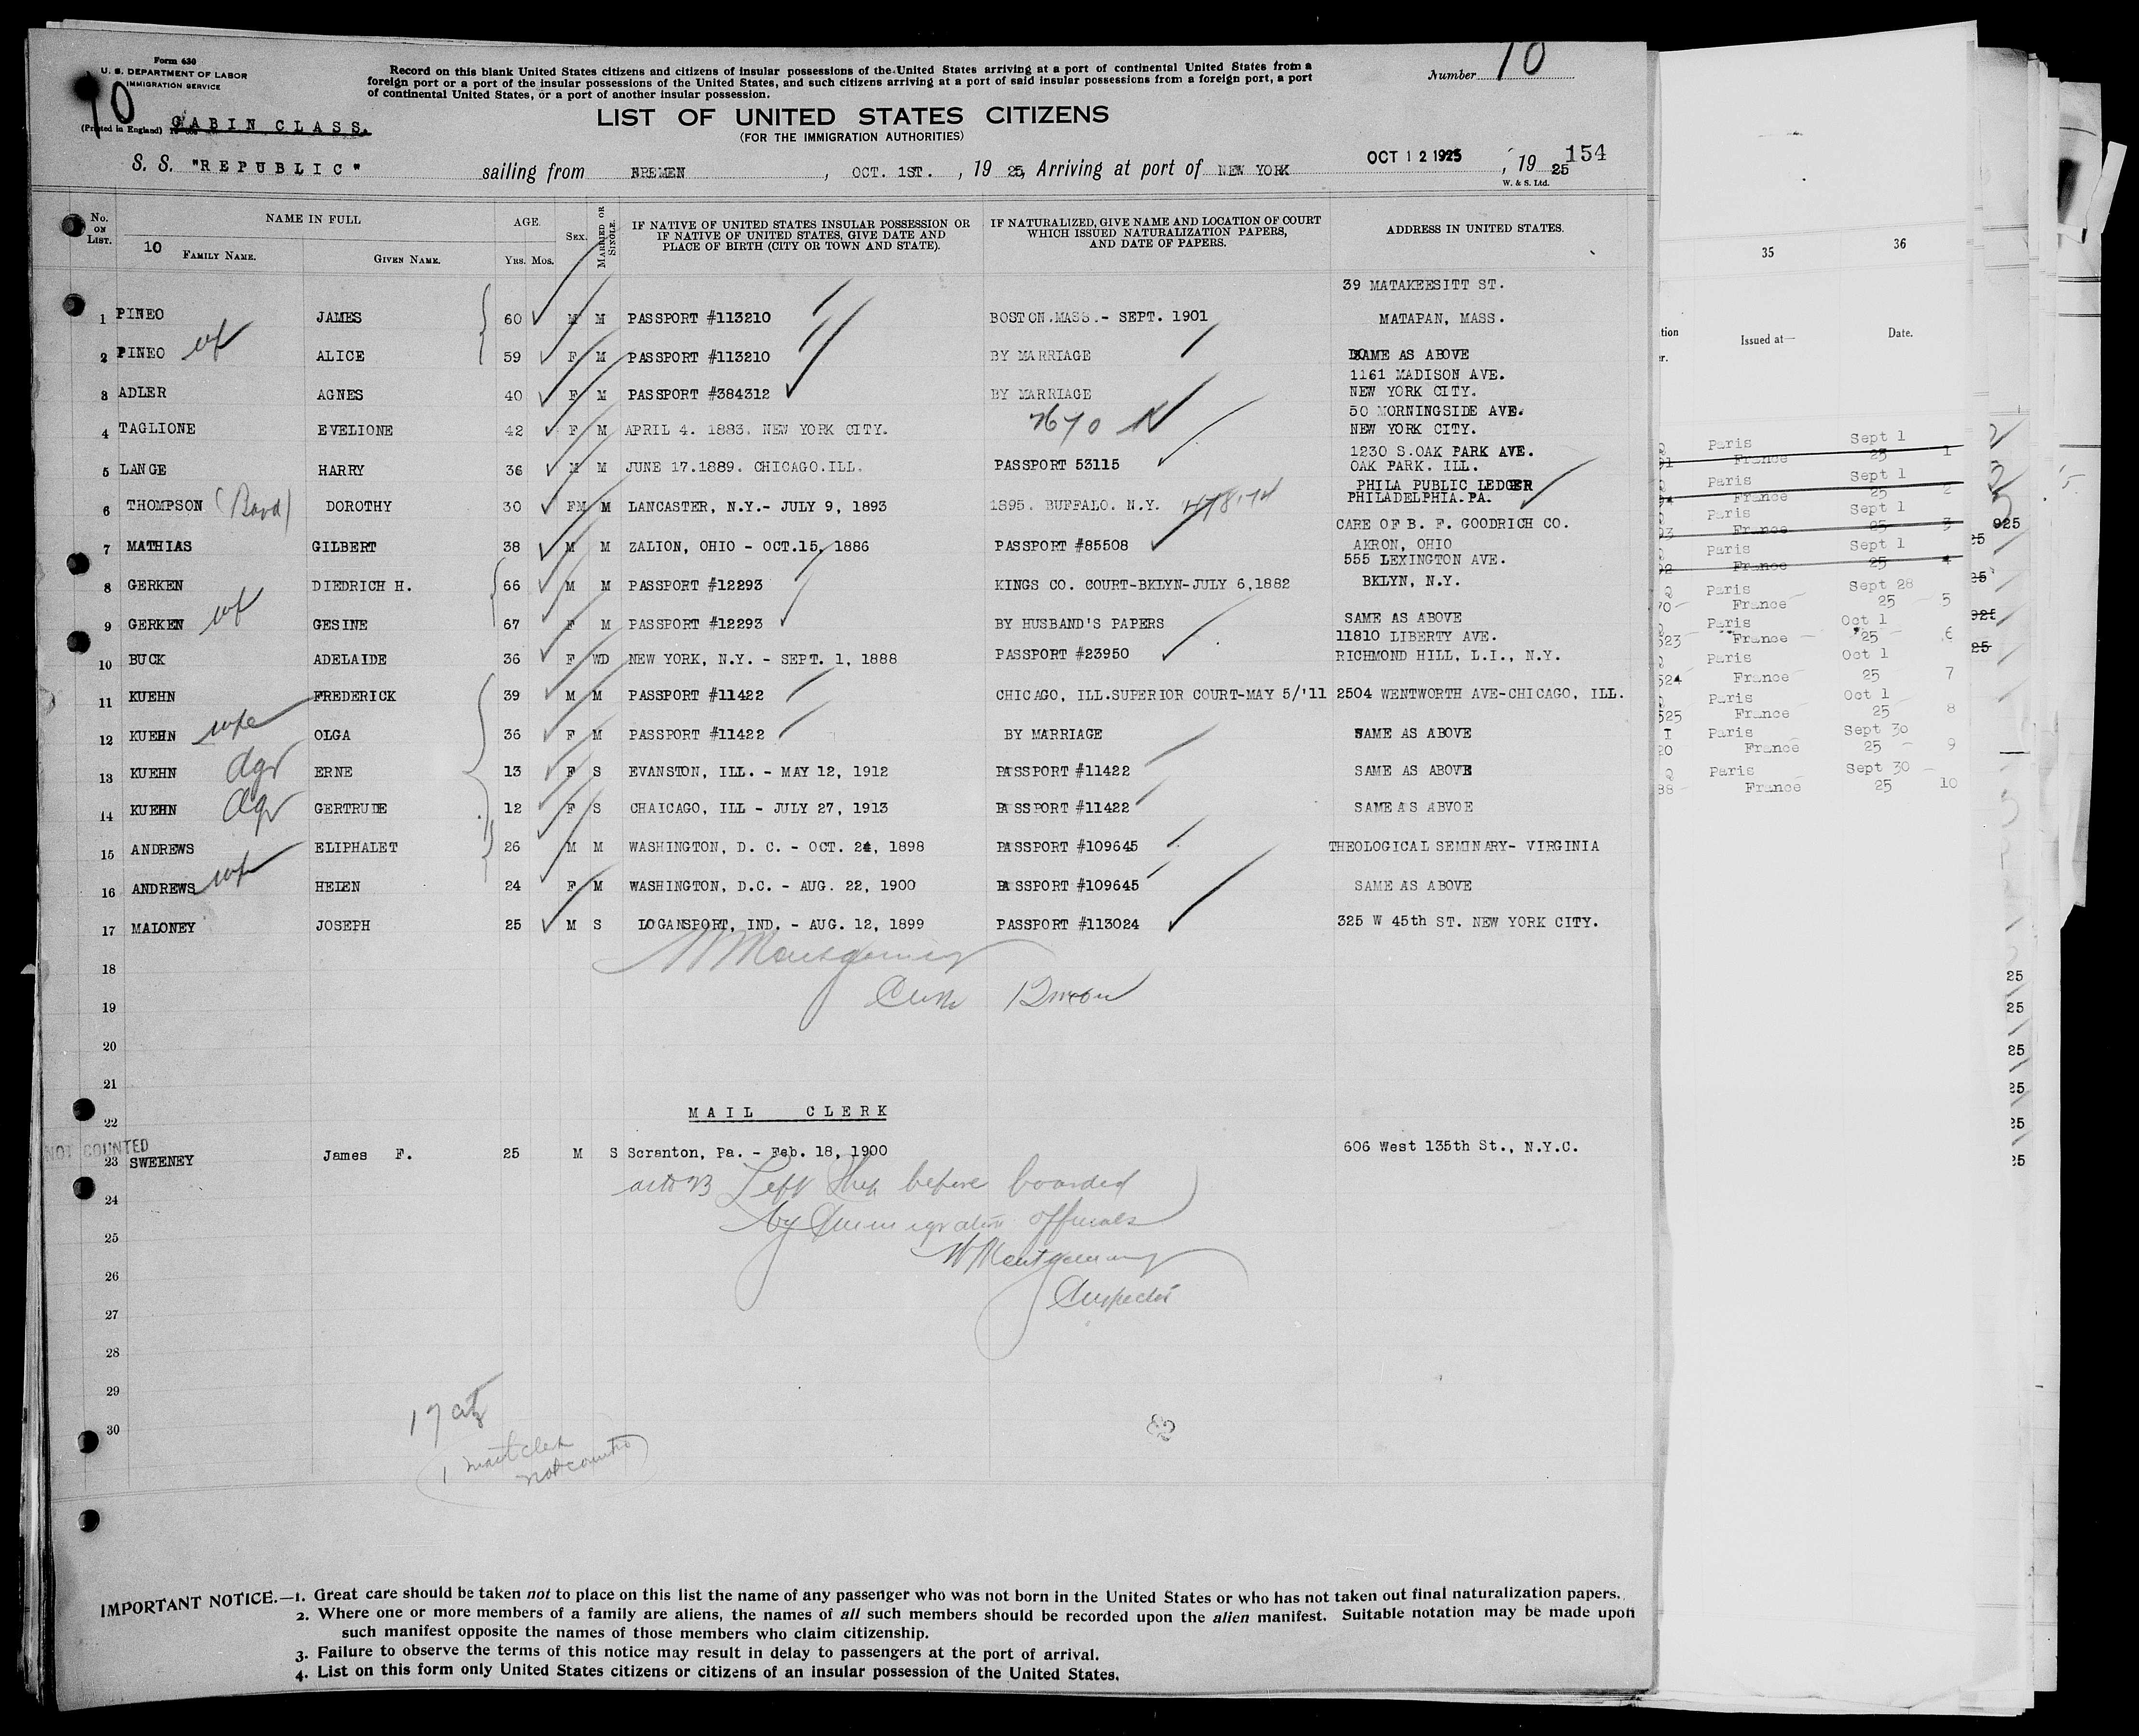 Form 630
U. S. DEPARTMENT OF LABOR
IMMIGRATION SERVICE
(Printed in England)
CABIN CLASS.
10
Record on this blank United States citizens and citizens of insular possessions of the United States arriving at a port of continental United States from a
foreign port or a port of the insular possessions of the United States, and such citizens arriving at a port of said insular possessions from a foreign port, a port
of continental United States, or a port of another insular possession.
Number 10
LIST OF UNITED STATES CITIZENS
(FOR THE IMMIGRATION AUTHORITIES)
S. S. "REPUBLIC" sailing from BREMEN, OCT. 1ST., 19 25, Arriving at port of NEW YORK OCT 12 1925, 19 25 154
W. & S. Ltd.
No. ON LIST. NAME IN FULL AGE. SEX. MARRIED OR SINGLE. IF NATIVE OF UNITED STATES INSULAR POSSESSION OR IF NATIVE OF UNITED STATES, GIVE DATE AND PLACE OF BIRTH (CITY OR TOWN AND STATE). IF NATURALIZED, GIVE NAME AND LOCATION OF COURT WHICH ISSUED NATURALIZATION PAPERS, AND DATE OF PAPERS. ADDRESS IN UNITED STATES.
10 FAMILY NAME. GIVEN NAME. YRS. MOS.
39 MATAKEESITT ST.
1 PINEO JAMES 60 M M PASSPORT #113210 BOSTON.MASS.- SEPT. 1901 MATAPAN, MASS.
2 PINEO wf ALICE 59 F M PASSPORT #113210 BY MARRIAGE SAME AS ABOVE
1161 MADISON AVE.
3 ADLER AGNES 40 F M PASSPORT #384312 BY MARRIAGE NEW YORK CITY.
50 MORNINGSIDE AVE.
4 TAGLIONE EVELIONE 42 F M APRIL 4. 1883. NEW YORK CITY. NEW YORK CITY.
1230 S.OAK PARK AVE.
5 LANGE HARRY 36 M M JUNE 17.1889. CHICAGO.ILL. PASSPORT 53115 OAK PARK. ILL.
PHILA PUBLIC LEDGER
6 THOMPSON DOROTHY 30 FM M LANCASTER, N.Y.- JULY 9, 1893 1895. BUFFALO. N.Y. PHILADELPHIA.PA.
CARE OF B. F. GOODRICH CO.
7 MATHIAS GILBERT 38 M M ZALION, OHIO - OCT.15, 1886 PASSPORT #85508 AKRON, OHIO
555 LEXINGTON AVE.
8 GERKEN DIEDRICH H. 66 M M PASSPORT #12293 KINGS CO. COURT-BKLYN-JULY 6,1882 BKLYN, N.Y.
9 GERKEN wf GESINE 67 F M PASSPORT #12293 BY HUSBAND'S PAPERS SAME AS ABOVE
11810 LIBERTY AVE.
10 BUCK ADELAIDE 36 F WD NEW YORK, N.Y. - SEPT. 1, 1888 PASSPORT #23950 RICHMOND HILL, L.I., N.Y.
11 KUEHN FREDERICK 39 M M PASSPORT #11422 CHICAGO, ILL.SUPERIOR COURT-MAY 5/'11 2504 WENTWORTH AVE-CHICAGO, ILL.
12 KUEHN wife OLGA 36 F M PASSPORT #11422 BY MARRIAGE SAME AS ABOVE
13 KUEHN dgr ERNE 13 F S EVANSTON, ILL. - MAY 12, 1912 PASSPORT #11422 SAME AS ABOVE
14 KUEHN dgr GERTRUDE 12 F S CHAICAGO, ILL - JULY 27, 1913 PASSPORT #11422 SAME AS ABVOE
15 ANDREWS ELIPHALET 26 M M WASHINGTON, D. C. - OCT. 24, 1898 PASSPORT #109645 THEOLOGICAL SEMINARY- VIRGINIA
16 ANDREWS wf HELEN 24 F M WASHINGTON, D.C. - AUG. 22, 1900 PASSPORT #109645 SAME AS ABOVE
17 MALONEY JOSEPH 25 M S LOGANSPORT, IND. - AUG. 12, 1899 PASSPORT #113024 325 W 45th ST. NEW YORK CITY.
18 W Montgomery
19
20
21
22 MAIL CLERK
NOT COUNTED
23 SWEENEY James F. 25 M S Scranton, Pa. - Feb. 18, 1900 606 West 135th St., N.Y.C.
24 as to 23 Left Ship before boarded
25 by Immigration officials
26 W Montgomery
27 Inspector
28
29
30
1 mail clerk
not counted
82
IMPORTANT NOTICE.—1. Great care should be taken not to place on this list the name of any passenger who was not born in the United States or who has not taken out final naturalization papers.
2. Where one or more members of a family are aliens, the names of all such members should be recorded upon the alien manifest. Suitable notation may be made upon
such manifest opposite the names of those members who claim citizenship.
3. Failure to observe the terms of this notice may result in delay to passengers at the port of arrival.
4. List on this form only United States citizens or citizens of an insular possession of the United States.
35 36
Issued at— Date.
Paris Sept 1
France 25 1
Paris Sept 1
France 25 2
Paris Sept 1
France 25 3
Paris Sept 1
France 25 4
Paris Sept 28
France 25 5
Paris Oct 1
France 25 6
Paris Oct 1
France 25 7
Paris Oct 1
France 25 8
Paris Sept 30
France 25 9
Paris Sept 30
France 25 10